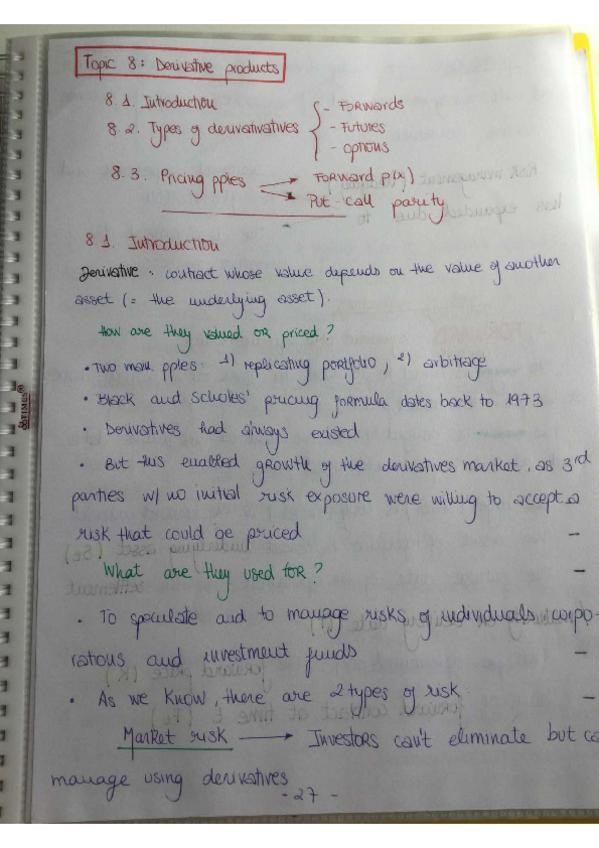 Topic 8: Derivative products
8.1. Introduction
8.2. Types of derivativatives - FORWARDS
- Futures
- options
8.3. Pricing pples → FORWARD p(x)
→ Put-call parity
8.1. Introduction
Derivative: contract whose value depends on the value of another
asset (= the underlying asset).
How are they valued OR priced?
• Two main pples: 1) replicating portfolio, 2) arbitrage
• Black and Scholes' pricing formula dates back to 1973
• Derivatives had always existed
• But this enabled growth of the derivatives market, as 3rd
parties w/ no initial risk exposure were willing to accept a
risk that could be priced
What are they used for?
• To speculate and to manage risks of individuals, corpo-
rations and investment funds
• As we know, there are 2 types of risk
Market risk → Investors can't eliminate but ca
manage using derivatives
- 27 -
OPTIMUS